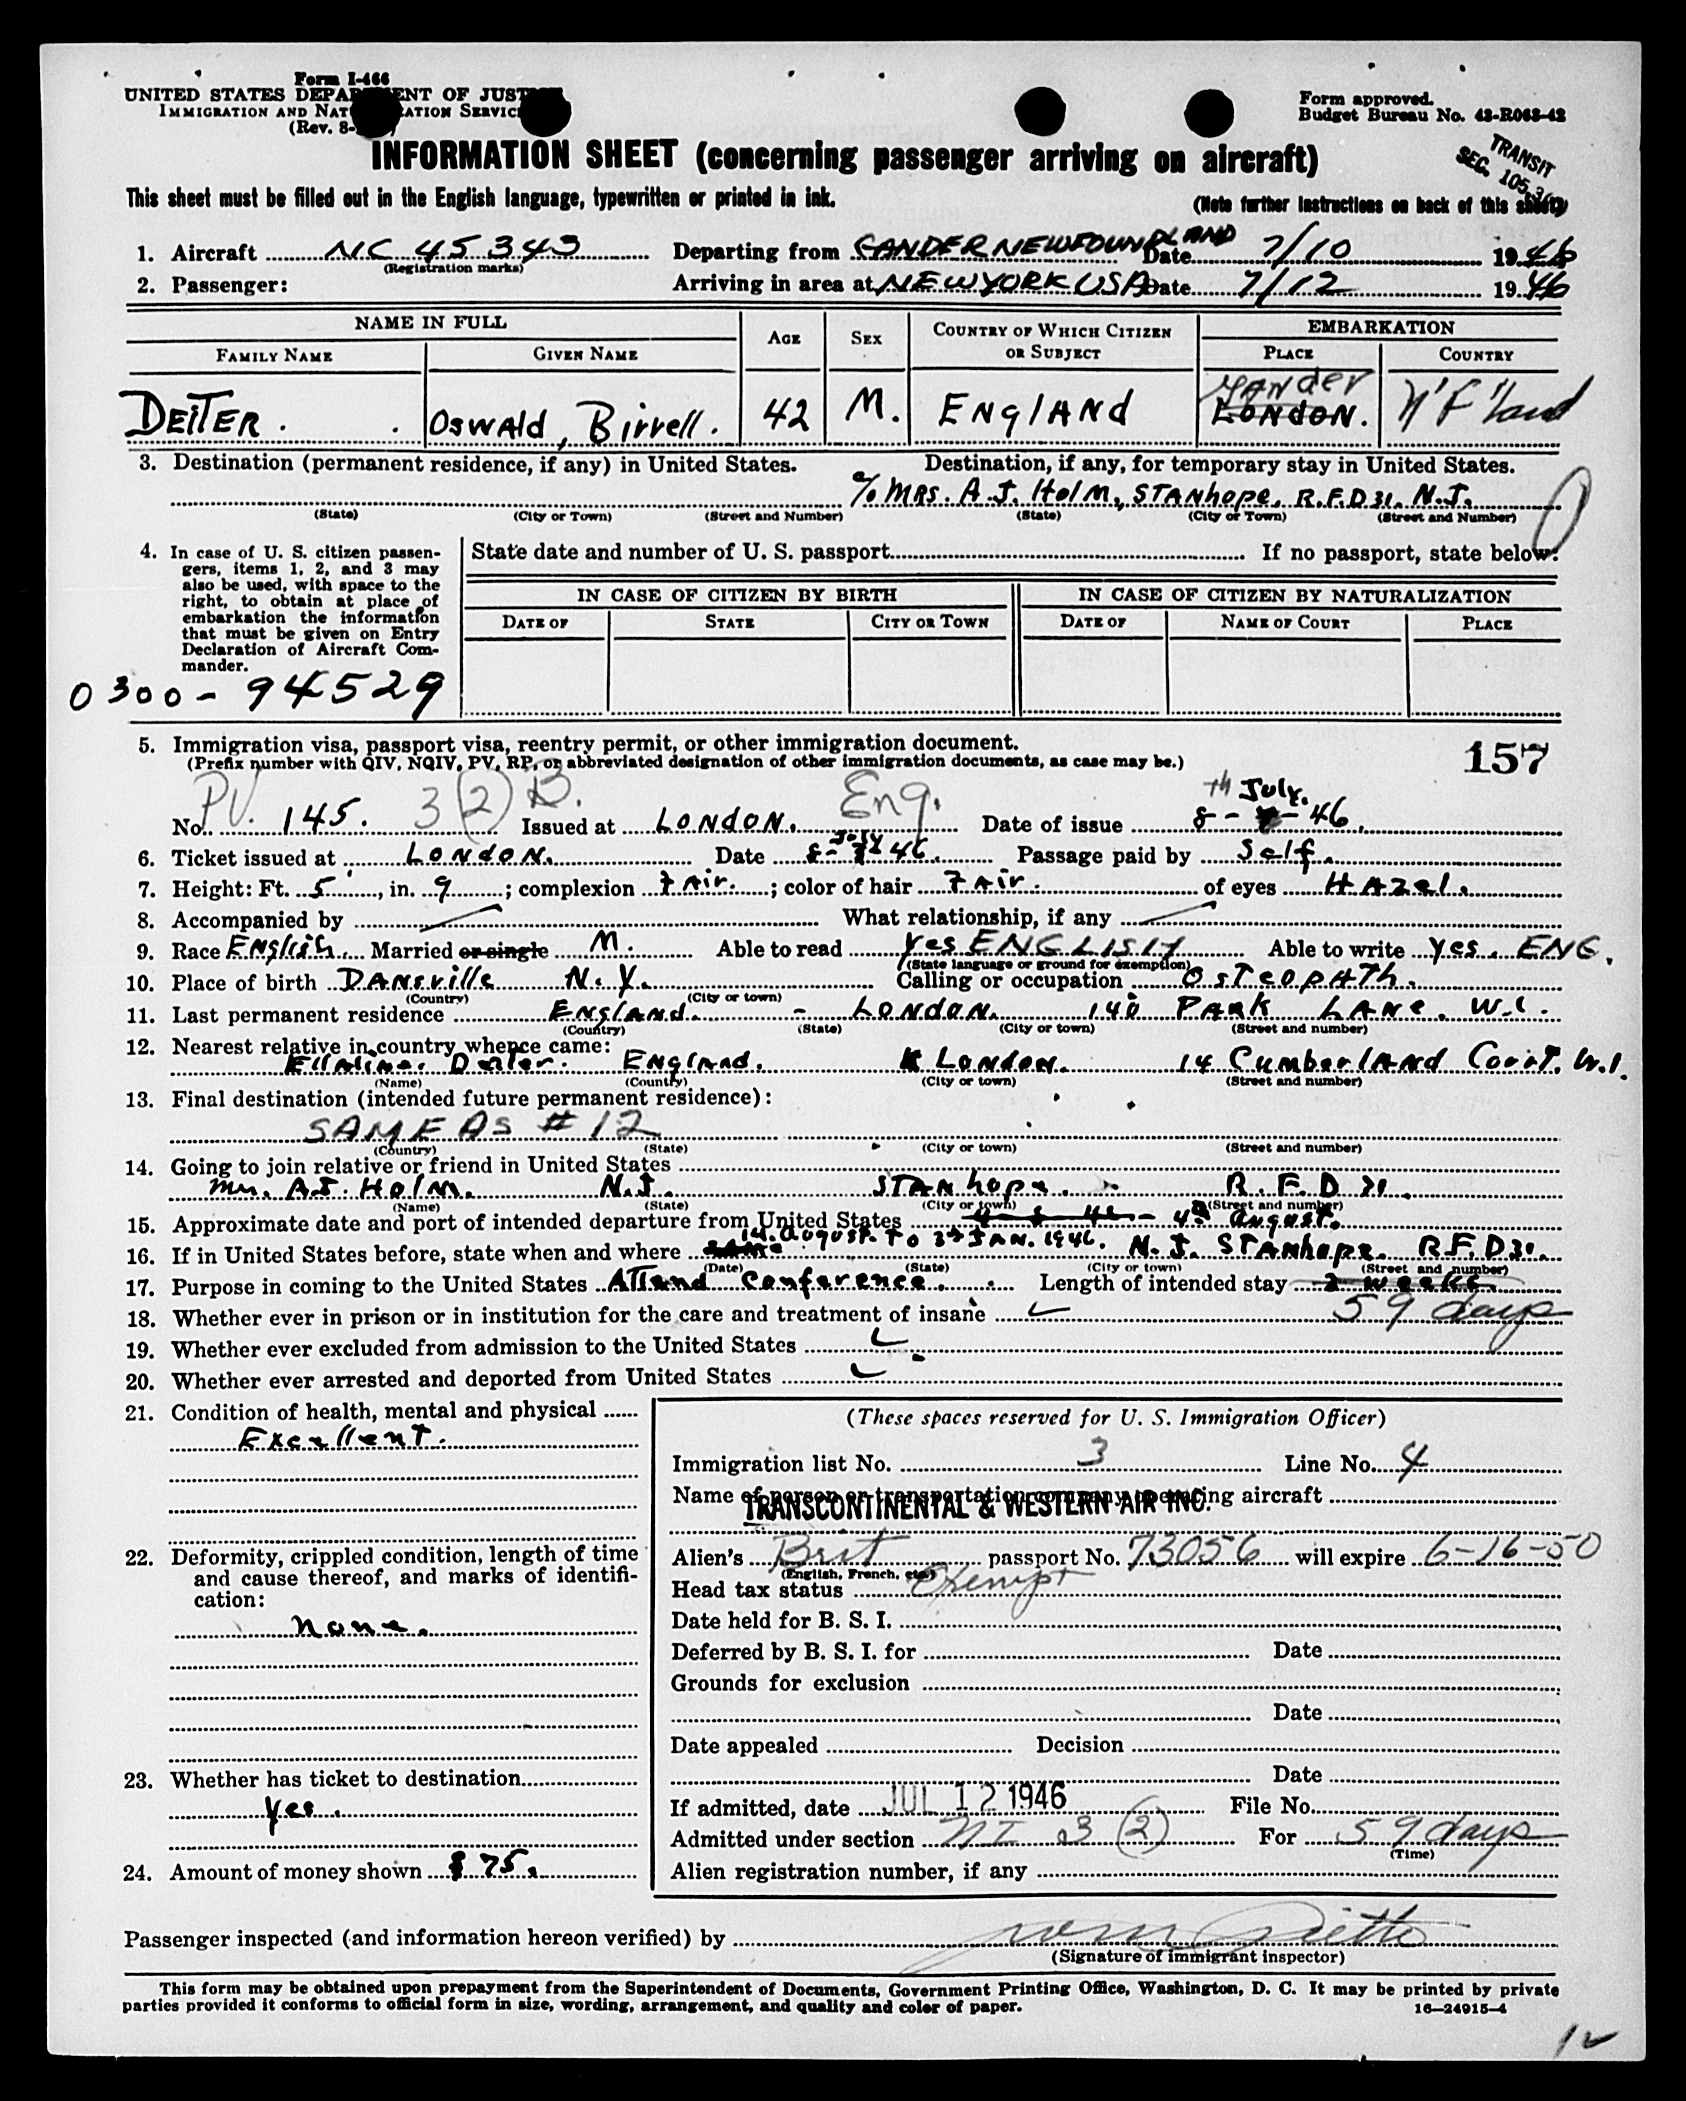 Form I-466
UNITED STATES DEPARTMENT OF JUSTICE
IMMIGRATION AND NATURALIZATION SERVICE
(Rev. 8-
Form approved.
Budget Bureau No. 43-R063-42
TRANSIT
SEC. 105.3(
INFORMATION SHEET (concerning passenger arriving on aircraft)
This sheet must be filled out in the English language, typewritten or printed in ink.
(Note further instructions on back of this sheet)
1. Aircraft NC 45343 Departing from GANDER NEWFOUNDLAND Date 7/10 1946
(Registration marks)
2. Passenger: Arriving in area at NEW YORK USA Date 7/12 1946
NAME IN FULL AGE SEX COUNTRY OF WHICH CITIZEN OR SUBJECT EMBARKATION
FAMILY NAME GIVEN NAME PLACE COUNTRY
Gander
DEITER. OSWAld, Birrell. 42 M. ENglANd LONdON. N'F'land
3. Destination (permanent residence, if any) in United States. Destination, if any, for temporary stay in United States.
% MRS. A.J. HolM, STANhope, R.F.D 31. N.J.
(State) (City or Town) (Street and Number) (State) (City or Town) (Street and Number)
4. In case of U. S. citizen passen-
gers, items 1, 2, and 3 may
also be used, with space to the
right, to obtain at place of
embarkation the information
that must be given on Entry
Declaration of Aircraft Com-
mander.
0300-94529
State date and number of U. S. passport If no passport, state below:
IN CASE OF CITIZEN BY BIRTH IN CASE OF CITIZEN BY NATURALIZATION
DATE OF STATE CITY OR TOWN DATE OF NAME OF COURT PLACE
5. Immigration visa, passport visa, reentry permit, or other immigration document.
(Prefix number with QIV, NQIV, PV, RP, or abbreviated designation of other immigration documents, as case may be.)
157
PV. 3(2) B. Eng. th July.
No. 145. Issued at LONdON. Date of issue 8- - 46.
6. Ticket issued at LONdON. Date 8- July 46. Passage paid by Self.
7. Height: Ft. 5', in. 9; complexion FAir.; color of hair FAir. of eyes HAzel.
8. Accompanied by What relationship, if any
9. Race English. Married or single M. Able to read Yes ENGLISH Able to write Yes. ENG.
(State language or ground for exemption)
10. Place of birth DANsville N.Y. Calling or occupation OsTeopATh.
(Country) (City or town)
11. Last permanent residence ENglANd. - LONdON. 140 PARK LANe. W.1.
(Country) (State) (City or town) (Street and number)
12. Nearest relative in country whence came:
Ellaline. Deiter. ENglANd. London. 14 CumberlANd Court. W.1.
(Name) (Country) (City or town) (Street and number)
13. Final destination (intended future permanent residence):
SAME AS # 12
(Country) (State) (City or town) (Street and number)
14. Going to join relative or friend in United States
Mrs. A.J. HolM. N.J. STANhope. R.F.D 31.
(Name) (State) (City or town) (Street and number)
15. Approximate date and port of intended departure from United States 4th August.
16. If in United States before, state when and where 14. August. To 3rd JAN. 1946. N.J. STANhope. R.F.D 31.
(Date) (State) (City or town) (Street and number)
17. Purpose in coming to the United States ATTend Conference. Length of intended stay 2 weeks
59 days
18. Whether ever in prison or in institution for the care and treatment of insane
19. Whether ever excluded from admission to the United States
20. Whether ever arrested and deported from United States
21. Condition of health, mental and physical
Excellent.
22. Deformity, crippled condition, length of time
and cause thereof, and marks of identifi-
cation:
None.
23. Whether has ticket to destination
Yes.
24. Amount of money shown $ 75.
(These spaces reserved for U. S. Immigration Officer)
Immigration list No. 3 Line No. 4
Name of person or transportation company operating aircraft
TRANSCONTINENTAL & WESTERN AIR INC.
Alien's Brit passport No. 73056 will expire 6-16-50
(English, French, etc.)
Head tax status Exempt
Date held for B. S. I.
Deferred by B. S. I. for Date
Grounds for exclusion
Date
Date appealed Decision
Date
If admitted, date JUL 12 1946 File No.
Admitted under section NI 3(2) For 59 days
(Time)
Alien registration number, if any
Passenger inspected (and information hereon verified) by
(Signature of immigrant inspector)
This form may be obtained upon prepayment from the Superintendent of Documents, Government Printing Office, Washington, D. C. It may be printed by private
parties provided it conforms to official form in size, wording, arrangement, and quality and color of paper. 16—24915-4